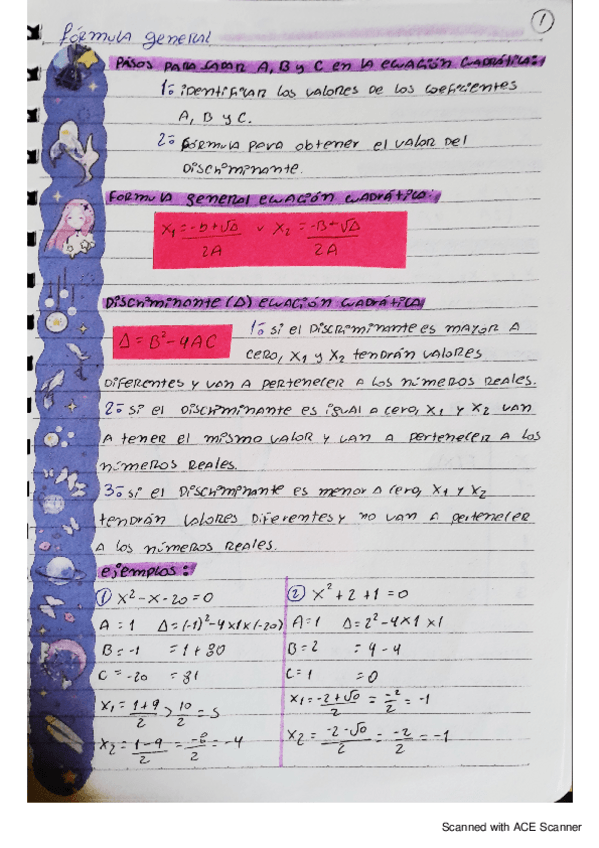 1
Fórmula general
Pasos para sacar A, B y C en la ecuación cuadrática:
1º identificar los valores de los coeficientes
A, B y C.
2º Fórmula para obtener el valor del
Discriminante.
Formula general ecuación cuadrática:
X₁ = -b+√Δ / 2A v X₂ = -B-√Δ / 2A
Discriminante (Δ) ecuación cuadrática
Δ = B² - 4AC
1º si el Discriminante es mayor a
cero, X₁ y X₂ tendrán valores
Diferentes y van a pertenecer a los números reales.
2º si el Discriminante es igual a cero, X₁ y X₂ van
a tener el mismo valor y van a pertenecer a los
números reales.
3º si el Discriminante es menor a cero, X₁ y X₂
tendrán valores Diferentes y no van a pertenecer
a los números reales.
ejemplos:
① X² - X - 20 = 0
A = 1 Δ = (-1)² - 4x1x(-20)
B = -1 = 1 + 80
C = -20 = 81
X₁ = 1+9 / 2 > 10 / 2 = 5
X₂ = 1-9 / 2 = -8 / 2 = -4
② X² + 2 + 1 = 0
A = 1 Δ = 2² - 4x1x1
B = 2 = 4 - 4
C = 1 = 0
X₁ = -2+√0 / 2 = -2 / 2 = -1
X₂ = -2-√0 / 2 = -2 / 2 = -1
Scanned with ACE Scanner